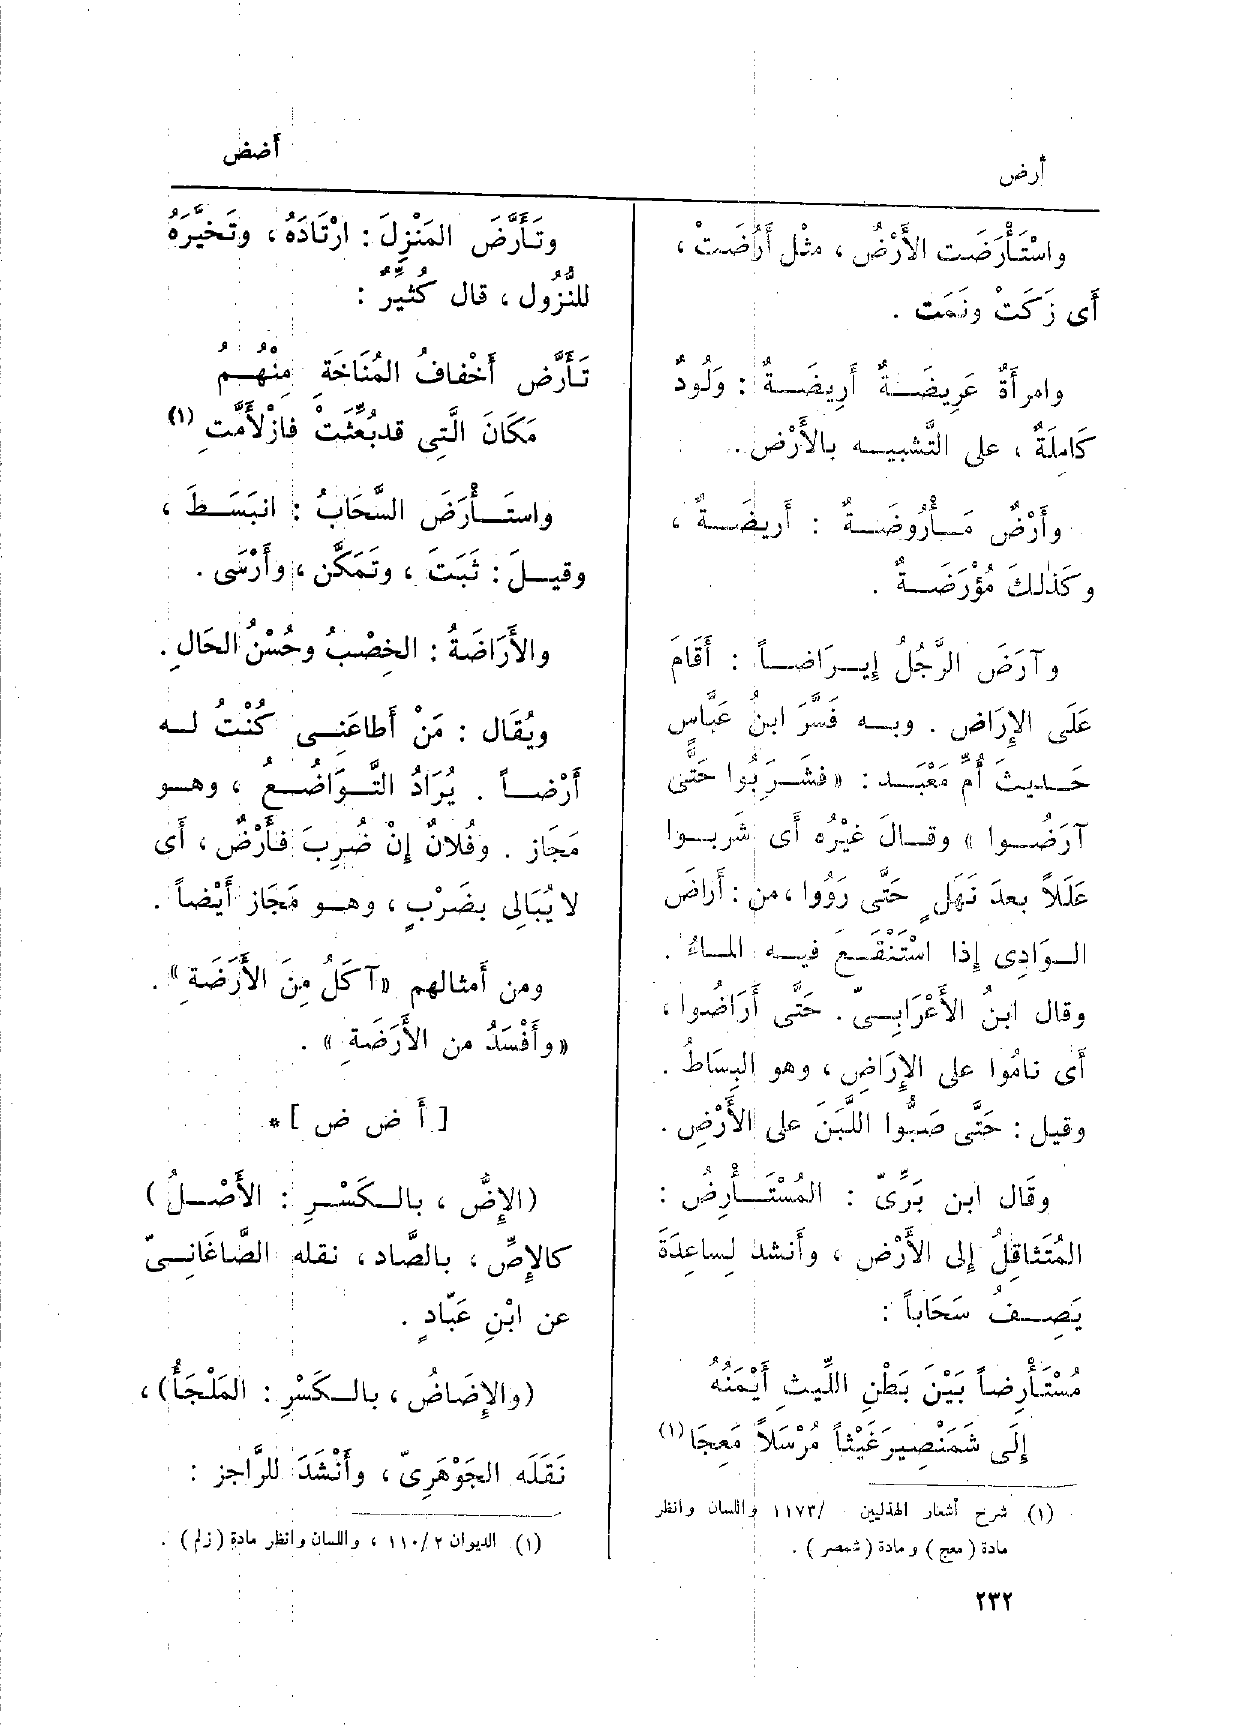 أرض
أضض
واسْتَأْرَضَت الأَرْضُ ، مثْل أَرُضَتْ ،
أَى زَكَتْ ونَمَت .
وامرأَةٌ عَرِيضَةٌ أَرِيضَةٌ : وَلُودٌ
كَامِلَةٌ ، على التَّشبيه بالأَرْض .
وأَرْضٌ مَأْرُوضَةٌ : أَريضَةٌ ،
وكَذٰلكَ مُؤْرَضَةٌ .
وآرَضَ الرَّجُلُ إِيرَاضاً : أَقَامَ
عَلَى الإِرَاض . وبه فَسَّرَ ابنُ عَبَّاسٍ
حَديثَ أُمِّ مَعْبَد : «فشَرِبُوا حَتَّى
آرَضُوا » وقالَ غيْرُه أَى شَربوا
عَلَلاً بعدَ نَهَلٍ حَتَّى رَوُوا ، من : أَراضَ
الوَادِى إِذا اسْتَنْقَعَ فيه الماءُ .
وقال ابنُ الأَعْرَابِىّ . حَتَّى أَرَاضُوا ،
أَى نامُوا على الإِرَاضِ ، وهو البِسَاطُ .
وقيل : حَتَّى صَبُّوا اللَّبَنَ على الأَرْضِ .
وقَال ابن بَرِّىّ : المُسْتَأْرِضُ :
المُتَثاقِلُ إِلى الأَرْض ، وأَنشد لساعِدَةَ
يَصِفُ سَحَاباً :
مُسْتَأْرِضاً بَيْنَ بَطْنِ اللِّيثِ أَيْمَنُهُ
إِلَى شَمَنْصِيرَ غَيْثاً مُرْسَلاً مَعِجَا (١)
(١) شرح أشعار الهذليين /١١٧٣ واللسان وانظر
مادة (معج) ومادة (شمصر) .
٢٣٢
وتَأَرَّضَ المَنْزِلَ : ارْتَادَهُ ، وتَخَيَّرَهُ
للنُّزُول ، قال كُثَيِّرٌ :
تَأَرَّض أَخْفافُ المُنَاخَةِ مِنْهُمُ
مَكَانَ الَّتِى قد بُعِّثَتْ فازْلأَمَّتِ (١)
واستَأْرَضَ السَّحَابُ : انبَسَطَ ،
وقيلَ : ثَبَتَ ، وتَمَكَّن ، وأَرْسَى .
والأَرَاضَةُ : الخِصْبُ وحُسْنُ الحَالِ .
ويُقَال : مَنْ أَطاعَنِى كُنْتُ له
أَرْضاً . يُرَادُ التَّوَاضُع ، وهو
مَجَاز . وفُلانٌ إِنْ ضُرِبَ فأَرْضٌ ، أَى
لا يُبَالِى بضَرْبٍ ، وهو مَجَاز أَيْضاً .
ومن أَمثالهم «آكَلُ مِنَ الأَرَضَةِ» .
«وأَفْسَدُ من الأَرَضَةِ » .
[ أ ض ض ] *
(الإِضُّ ، بالكَسْرِ : الأَصْلُ )
كالإِصِّ ، بالصَّاد ، نقله الصَّاغَانِىّ
عن ابْنِ عَبّادٍ .
(والإِضَاضُ ، بالكَسْرِ : المَلْجَأُ) ،
نَقَلَه الجَوْهَرِىّ ، وأَنْشَدَ للرَّاجز :
(١) الديوان ١١٠/٢ ، واللسان وانظر مادة (زلم) .